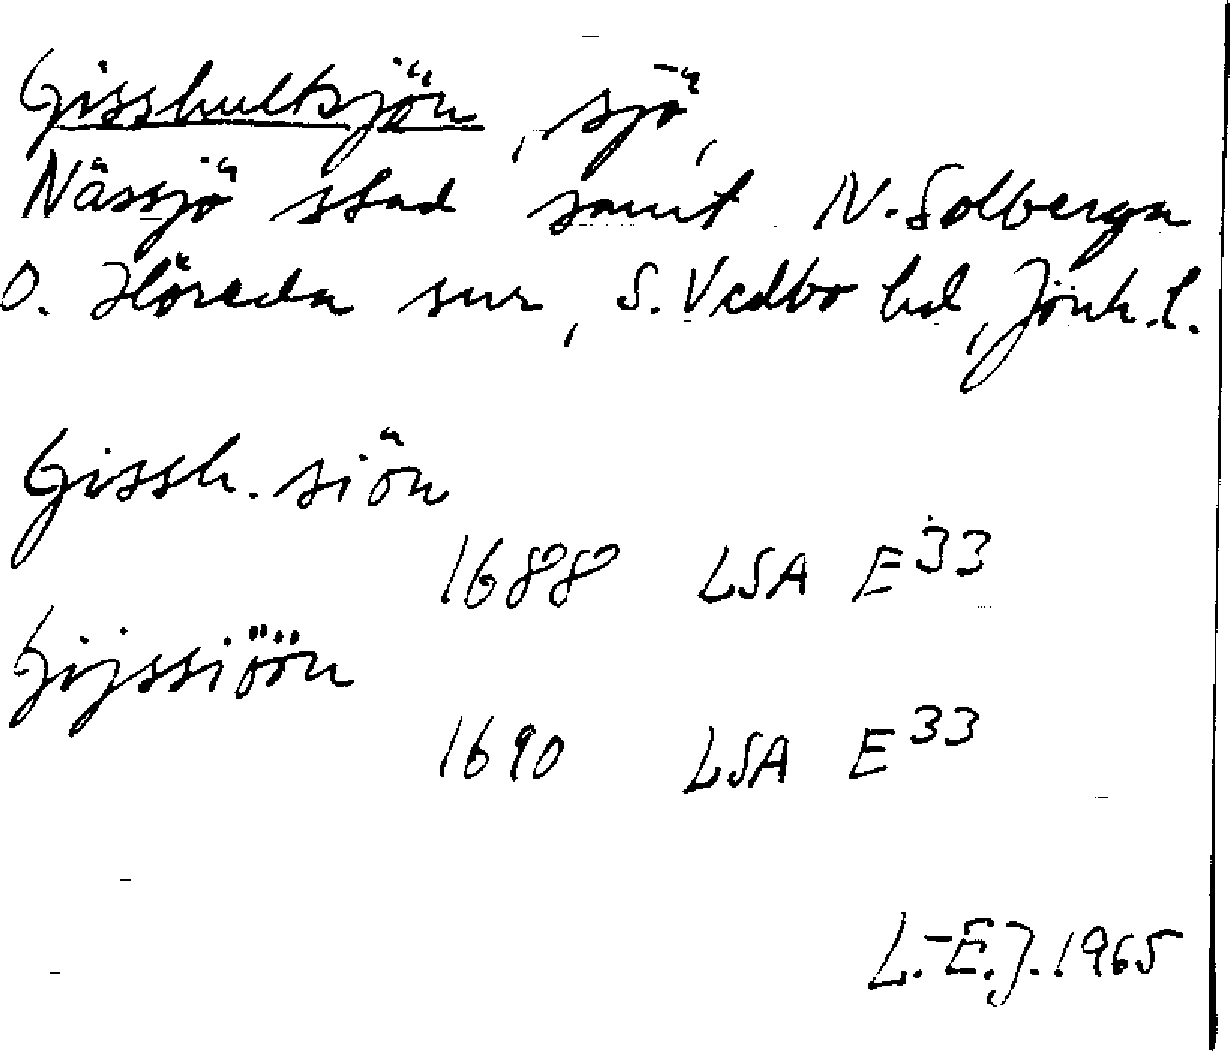 Gisshultsjön, sjö,
Nässjö stad samt N. Solberga
o. Flisreda snr, S. Vedbo hd, Jönk. l.
Gissh. siön
1688 LSA E 33
Gijssiöön
1690 LSA E 33
L.-E.J. 1965